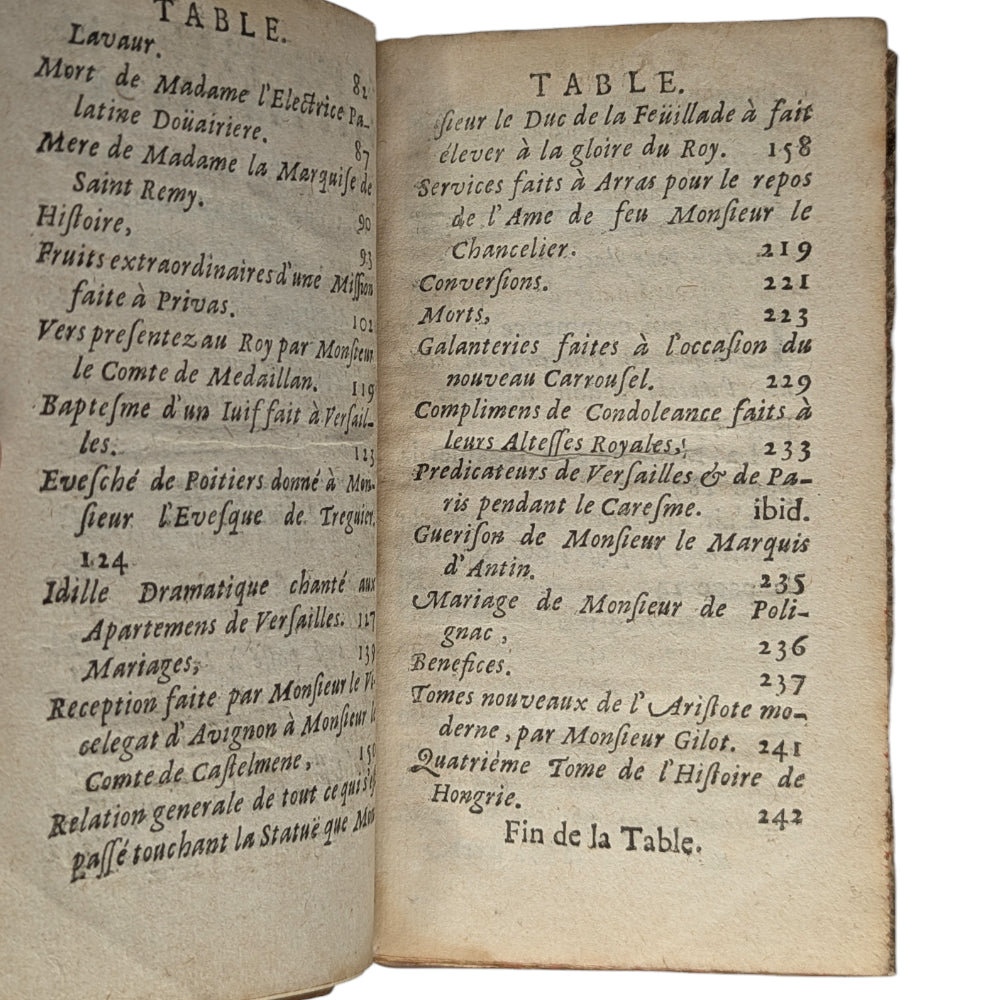 TABLE.
Lavaur. 82
Mort de Madame l'Electrice Pa-
latine Doüairiere. 87
Mere de Madame la Marquiſe de
Saint Remy. 90
Hiſtoire, 93
Fruits extraordinaires d'une Miſſion
faite à Privas. 102
Vers preſentez au Roy par Monſieur
le Comte de Medaillan. 119
Bapteſme d'un Iuif fait à Verſail-
les. 123
Eveſché de Poitiers donné à Mon-
ſieur l'Eveſque de Treguier.
124
Idille Dramatique chanté aux
Apartemens de Verſailles. 127
Mariages, 139
Reception faite par Monſieur le Vi-
celegat d'Avignon à Monſieur le
Comte de Caſtelmene,
Relation generale de tout ce qui s'eſt
paſſé touchant la Statuë que Mon
TABLE.
ſieur le Duc de la Feüillade à fait
élever à la gloire du Roy. 158
Services faits à Arras pour le repos
de l'Ame de feu Monſieur le
Chancelier. 219
Converſions. 221
Morts, 223
Galanteries faites à l'occaſion du
nouveau Carrouſel. 229
Complimens de Condoleance faits à
leurs Alteſſes Royales, 233
Predicateurs de Verſailles & de Pa-
ris pendant le Careſme. ibid.
Gueriſon de Monſieur le Marquis
d'Antin. 235
Mariage de Monſieur de Poli-
gnac, 236
Benefices. 237
Tomes nouveaux de l'Ariſtote mo-
derne, par Monſieur Gilot. 241
Quatriéme Tome de l'Hiſtoire de
Hongrie. 242
Fin de la Table.